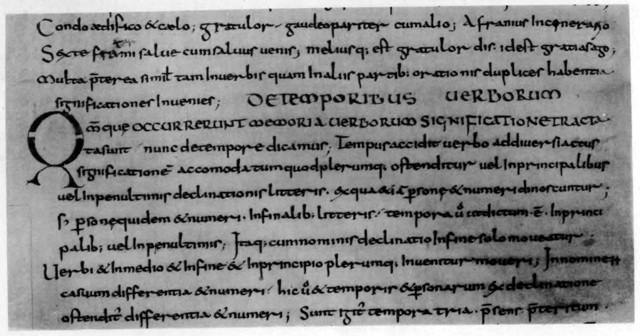 Condo ædifico & cælo; gratulor · gaudeo pariter cum alio; Afranius In cinerario
Sexte frater mi salue cum saluus uenis; meliusq; est gratulor dis · id est gratias ago;
Multa p̄terea simil̄ tam In uerbis quam In aliis partib; orationis duplices habentia
significationes Inuenies; DE TEMPORIBUS UERBORUM
Qm̄ que OCCURRERUNT MEMORIA UERBORUM SIGNIFICATIONE TRACTA
ta sunt nunc de tempore dicamus; Tempus accidit uerbo ad diuersi actus
significationē accomodatum quod plerumq; ostenditur uel In principalibus
uel In penultimis declinationis litteris · ex qua & psonę & numeri dinoscuntur;
s; psonę quidem & numeri · In finalib; litteris · tempora ū ut dictum ē · In princi
palib; uel In penultimis; Itaq; cum nominis declinatio In fine solo moueatur ·
Uerbi & In medio & In fine & In principio plerumq; Inuenitur moueri; In nomine
casuum differentia & numeri · hic ū & temporis & personarum ex declinatione
ostendit̄ differentia & numeri; Sunt igit̄ tempora tria · p̄sens p̄teritum